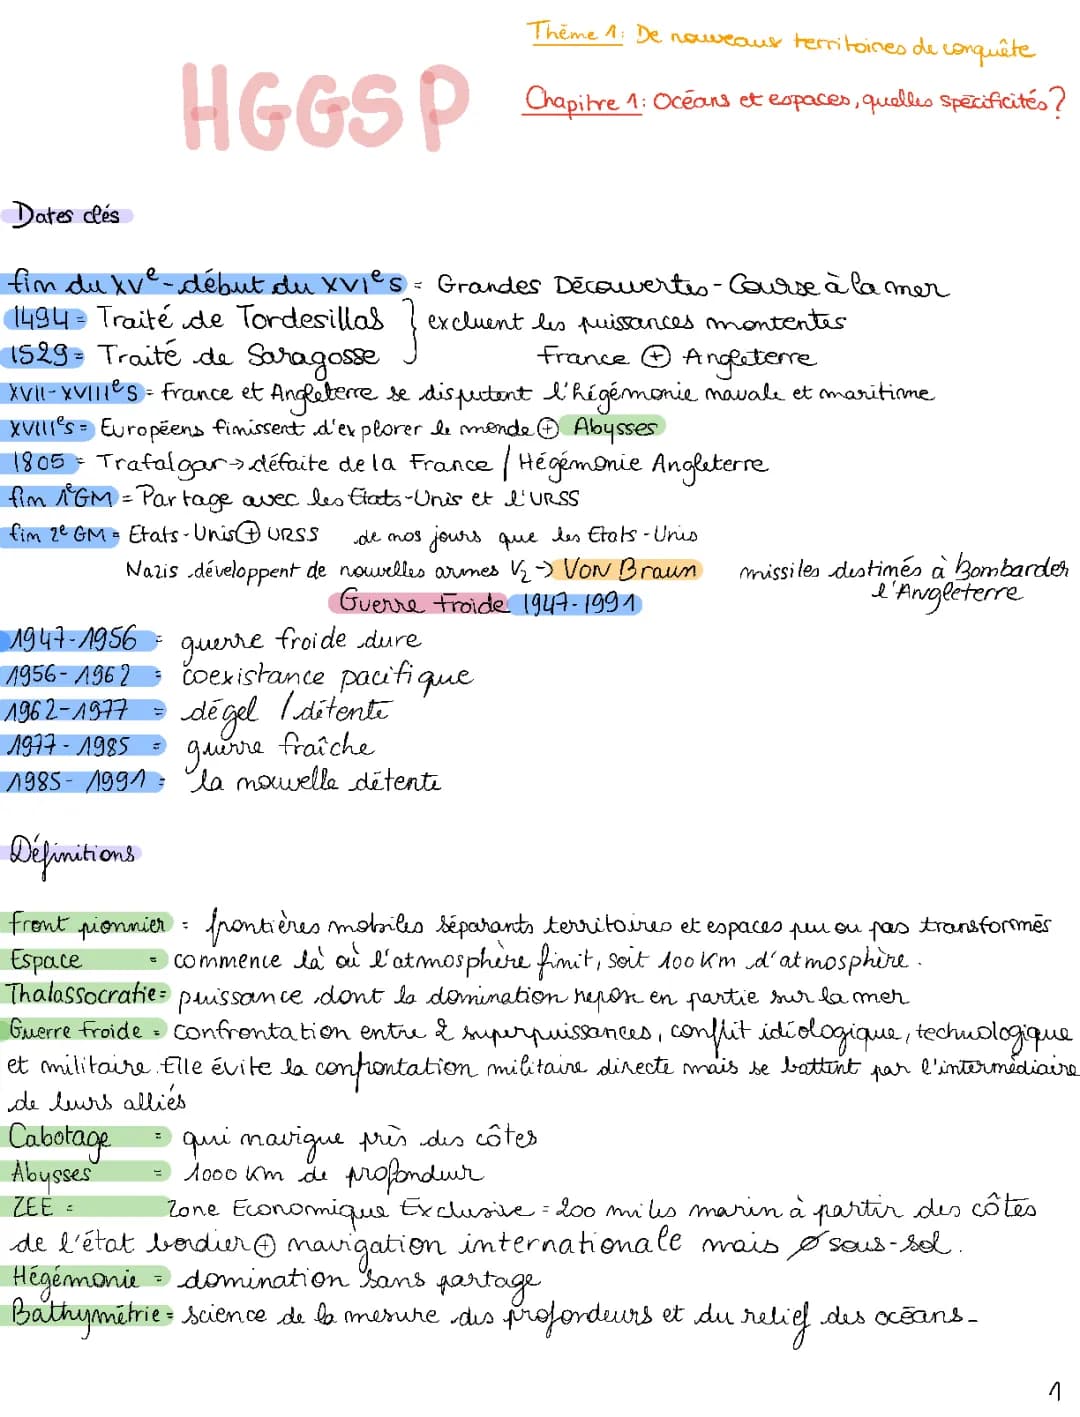 Thème 1: De nouveaux territoires de conquête
HGGSP
Chapitre 1: Océans et espaces, quelles spécificités?
Dates clés
fin du XVe - début du XVIes = Grandes Découvertes - Course à la mer
1494 = Traité de Tordesillas } excluent les puissances montentes
1529 = Traité de Saragosse France ⊕ Angleterre
XVII-XVIIIes = France et Angleterre se disputent l'hégémonie navale et maritime
XVIIIes = Européens finissent d'explorer le monde ⊕ Abysses
1805 = Trafalgar → défaite de la France / Hégémonie Angleterre
fin 1e GM = Partage avec les États-Unis et l'URSS
fin 2e GM = Etats-Unis ⊕ URSS de nos jours que les Etats-Unis
Nazis développent de nouvelles armes V2 → Von Braun missiles destinés à Bombarder l'Angleterre
Guerre froide 1947-1991
1947-1956 = guerre froide dure
1956-1962 = coexistance pacifique
1962-1977 = dégel / détente
1977-1985 = guerre fraîche
1985-1991 = la nouvelle détente
Définitions
Front pionnier = frontières mobiles séparants territoires et espaces peu ou pas transformés
Espace = commence là où l'atmosphère finit, soit 100 km d'atmosphère.
Thalassocratie = puissance dont la domination repose en partie sur la mer
Guerre froide = confrontation entre 2 superpuissances, conflit idéologique, technologique
et militaire. Elle évite la confrontation militaire directe mais se battent par l'intermédiaire
de leurs alliés
Cabotage = qui navigue près des côtes
Abysses = 1000 km de profondeur
ZEE = Zone Economique Exclusive = 200 miles marin à partir des côtes
de l'état bordier ⊕ navigation internationale mais ∅ sous-sol.
Hégémonie = domination sans partage
Bathymétrie = science de la mesure des profondeurs et du relief des océans-
1